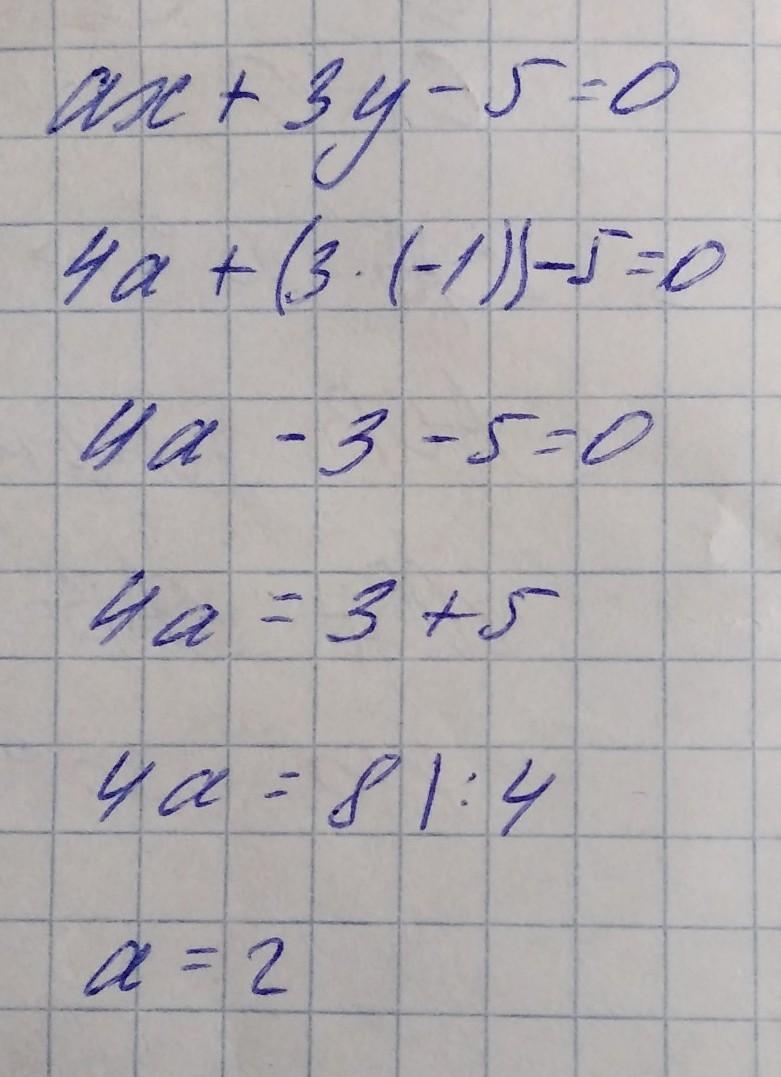 ax + 3y - 5 = 0
4a + (3 · (-1)) - 5 = 0
4a - 3 - 5 = 0
4a = 3 + 5
4a = 8 | : 4
a = 2